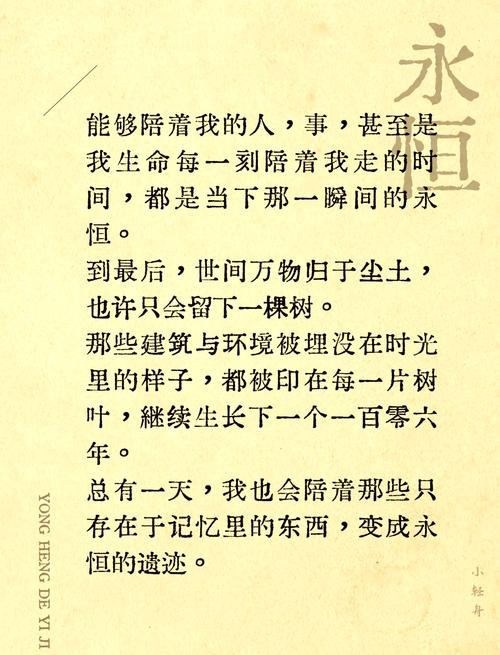 永恒
能够陪着我的人，事，甚至是
我生命每一刻陪着我走的时
间，都是当下那一瞬间的永
恒。
到最后，世间万物归于尘土，
也许只会留下一棵树。
那些建筑与环境被埋没在时光
里的样子，都被印在每一片树
叶，継续生长下一个一百零六
年。
总有一天，我也会陪着那些只
存在于记忆里的东西，变成永
恒的遗迹。
YONG HENG DE YI JI
小轻舟